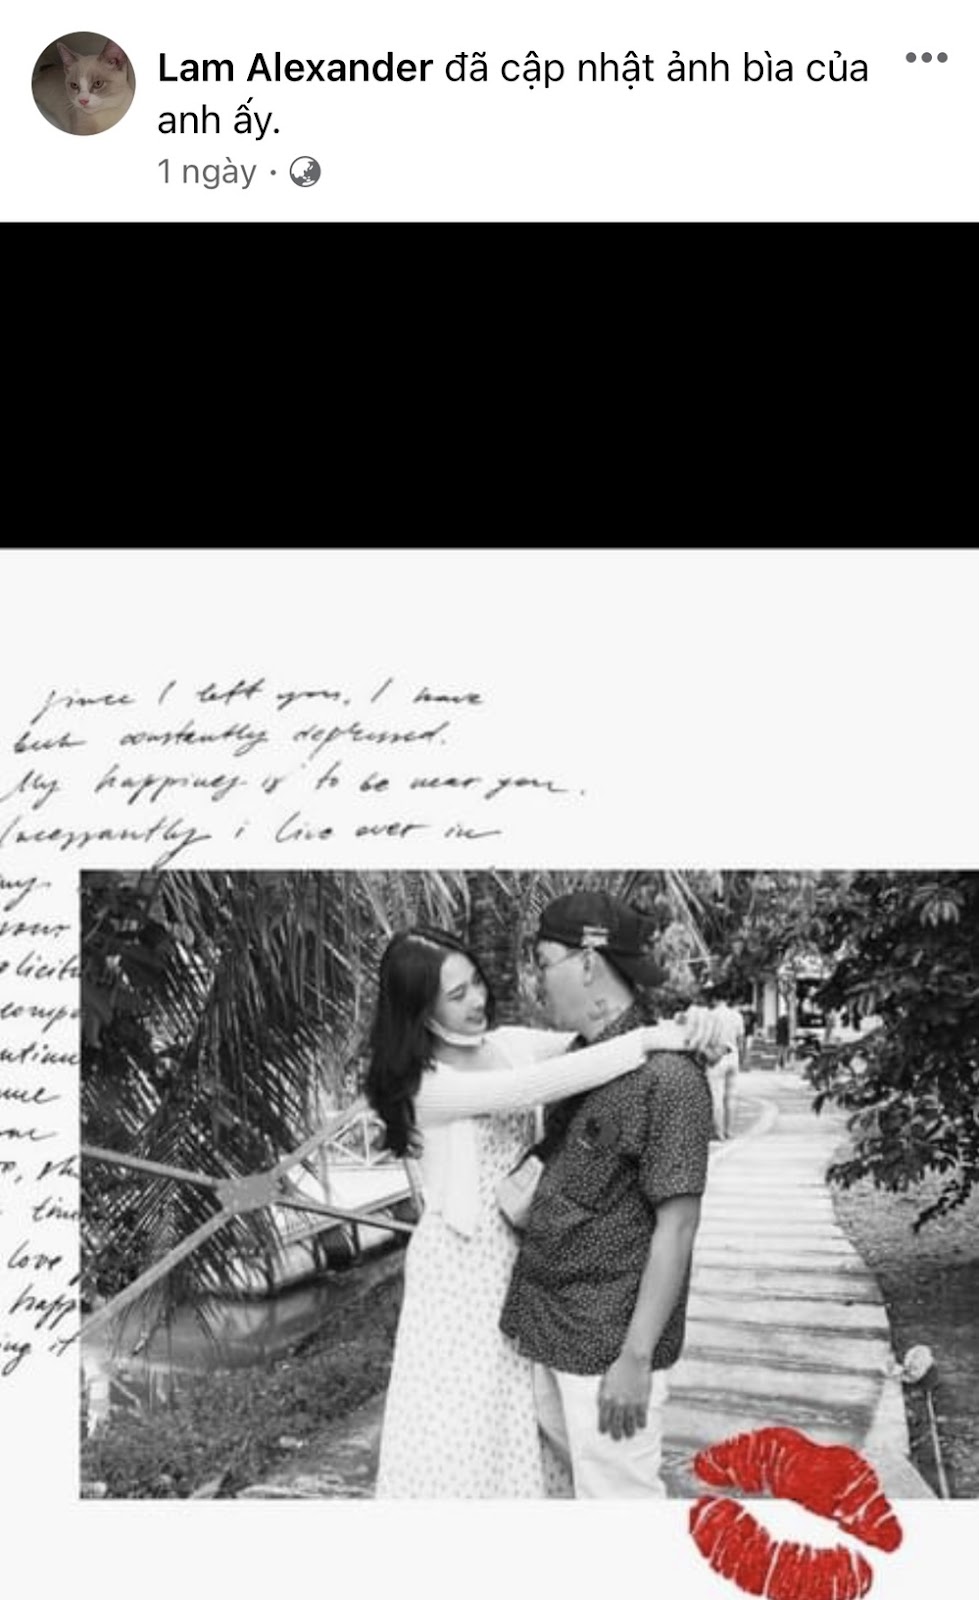 Lam Alexander đã cập nhật ảnh bìa của
anh ấy.
1 ngày ·
since I left you, I have
been constantly depressed.
My happiness is to be near you.
Incessantly i live over in
my
your
love